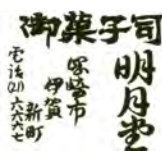 御菓子司
明月堂
岡崎市
伊賀
新町
電話(21)六六六七